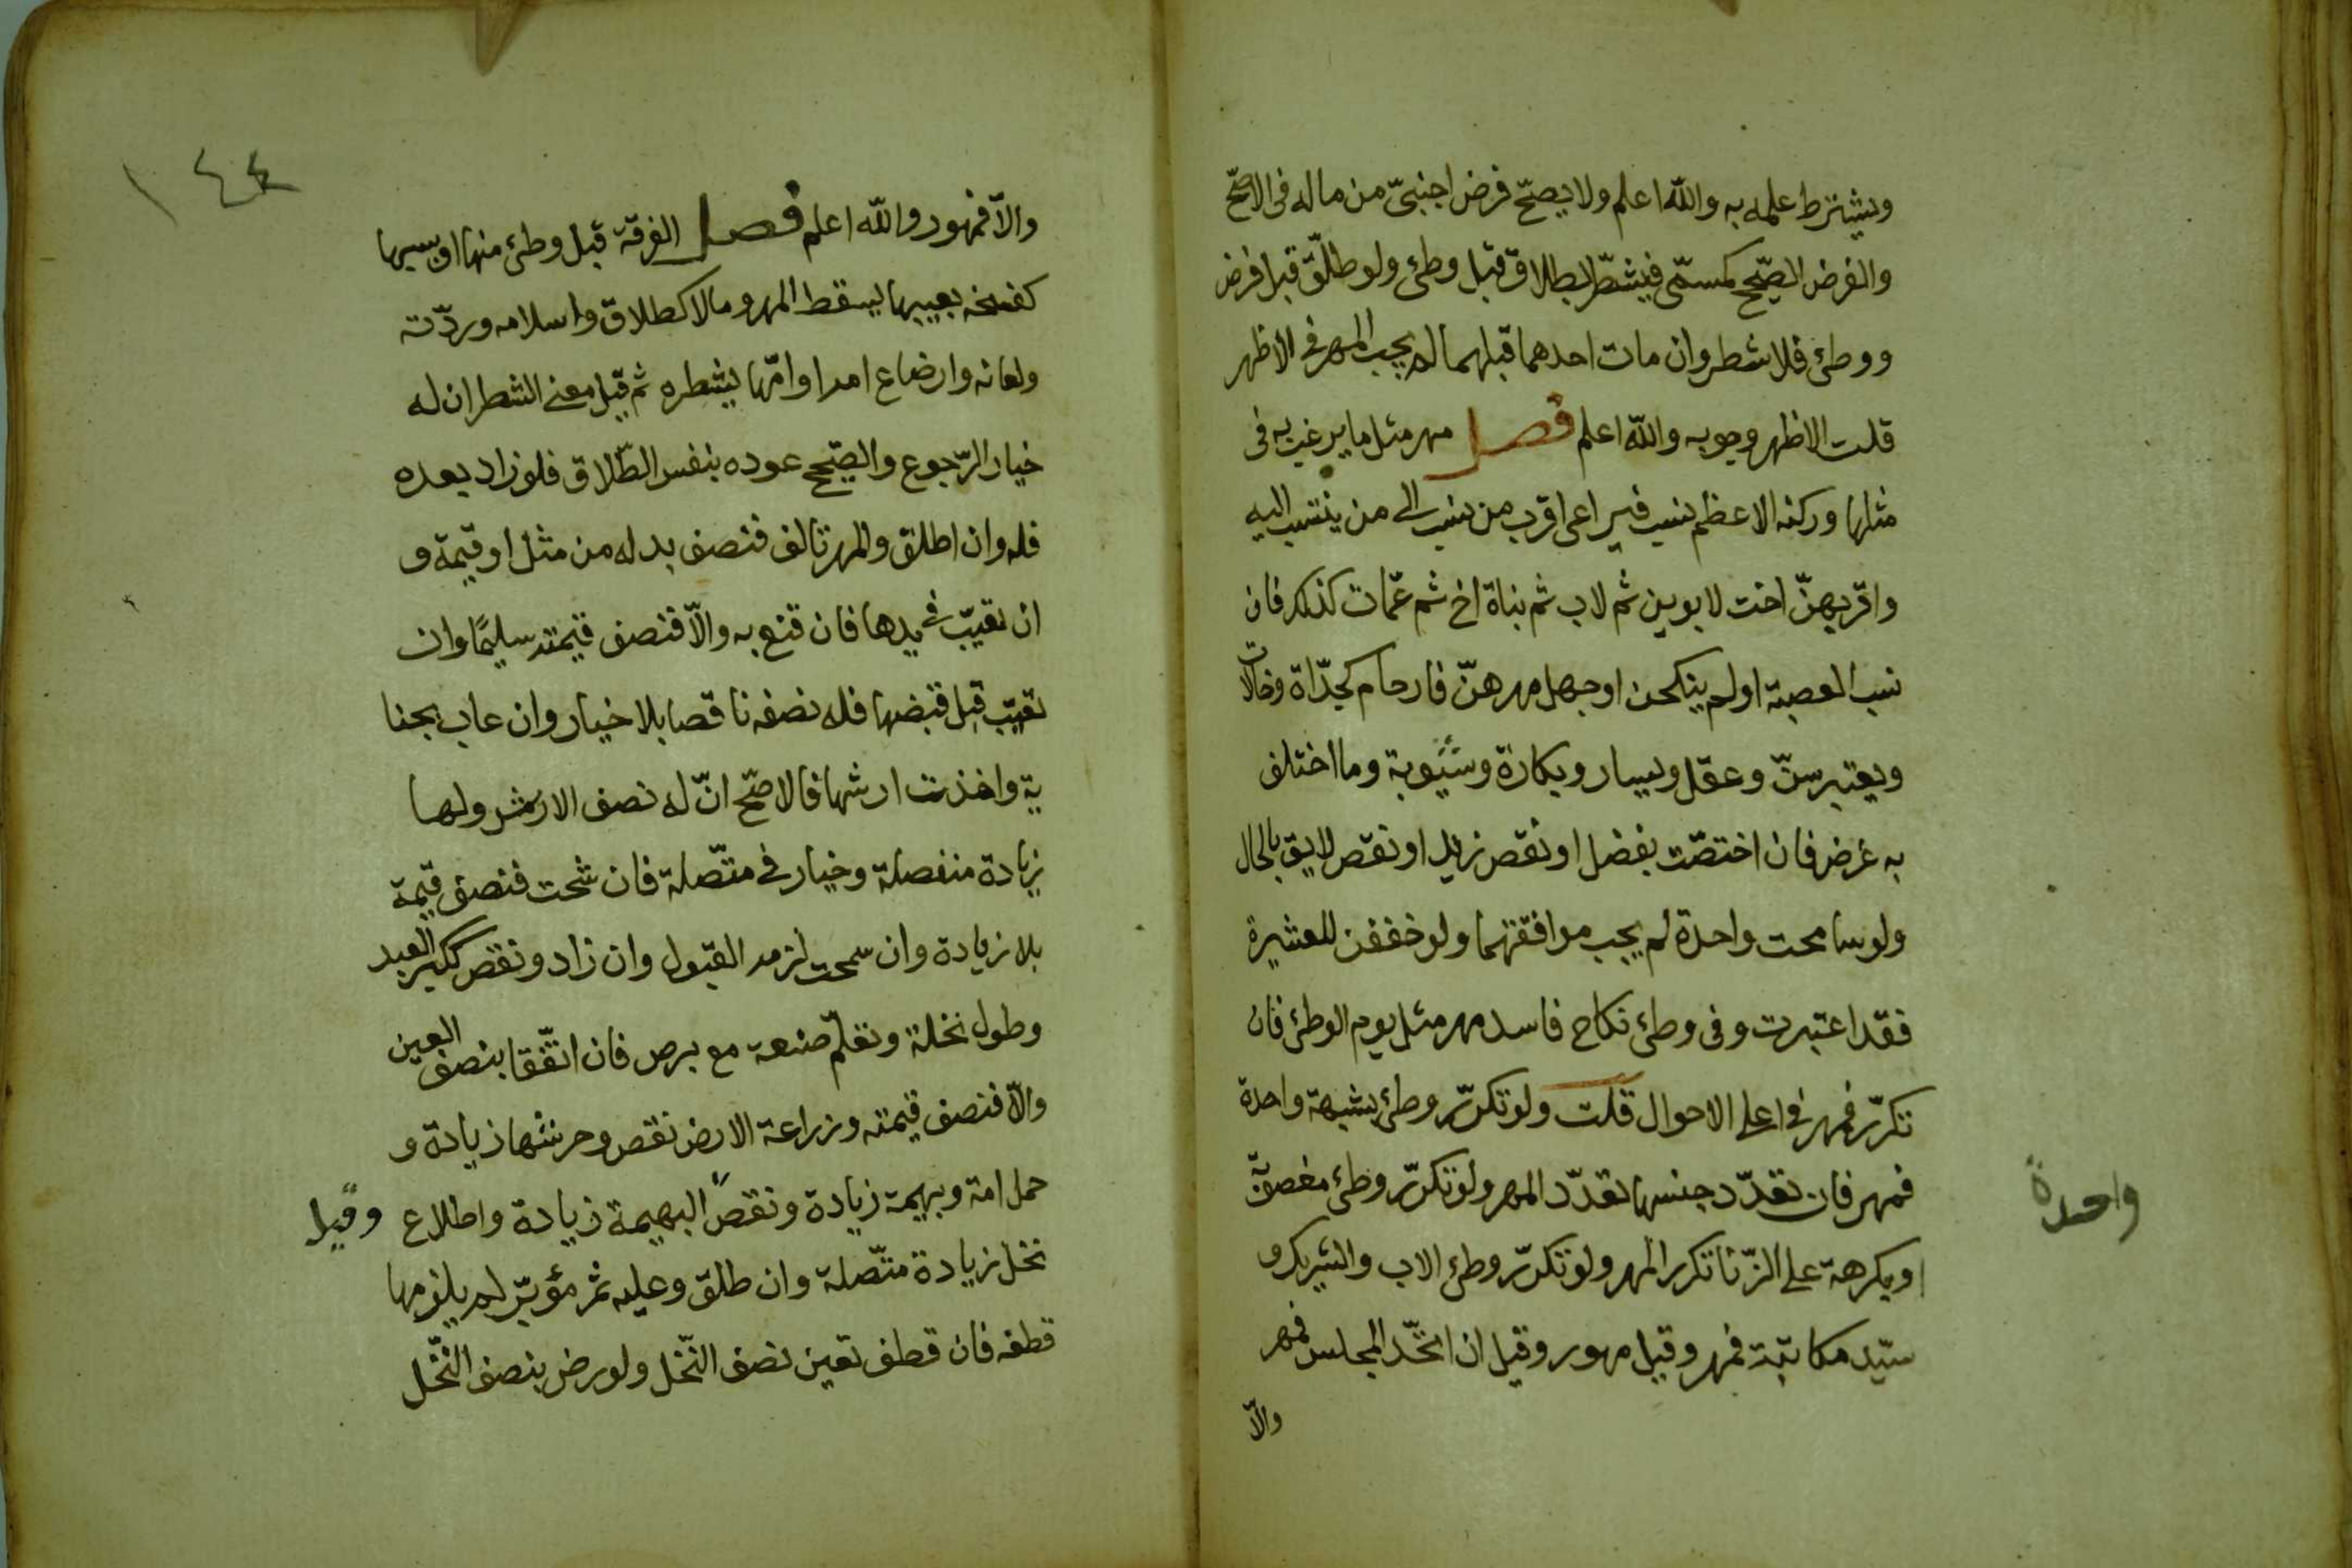 ويشترط علمه به والله اعلم ولا يصحّ فرض اجنبيّ من ماله فى الاصحّ
والفرض الصّحيح كمسمّى فيتشطّر بطلاق قبل وطئ ولو طلّق قبل فرض
ووطئ فلا شطر وان مات احدهما قبلهما لم يجب المهر فى الاظهر
قلت الاظهر وجوبه والله اعلم فصل مهر مثل ما يرغب به فى
مثلها وركنه الاعظم نسب فيراعى اقرب من ننسب الى من ينتسب اليه
واقربهنّ اخت لابوين ثم لاب ثم بناة اخ ثم عمّات كذلك فان
نسب العصبة او لم ينكحن او جهل مهرهنّ فارحام كجدّاة وخالات
ويعتبر سنّ وعقل ويسار وبكارة وثيوبة وما اختلف
به غرض فان اختصّت بفضل او نقص زيد او نقص لايق بالحال
ولو سامحت واحدة لم يجب موافقتها ولو خففن للعشيرة
فقد اعتبرت وفى وطئ نكاح فاسد مهر مثل يوم الوطئ فان
تكرّر فمهر فى اعلى الاحوال قلت ولو تكرّر وطئ بشبهة واحدة
فمهر فان تعدّد جنسها تعدّد المهر ولو تكرّر وطئ مغصوبة
او مكرهة على الزّنا تكرر المهر ولو تكرّر وطئ الاب والشريك و
سيّد مكاتبة فمهر وقيل مهور وقيل ان اتحّد المجلس فمهر
والّا
واحدة
١٤٤
والّا فمهور والله اعلم فصل الفرقة قبل وطئ منها او بسببها
كفسخه بعيبها يسقط المهر وما لا كطلاق واسلامه وردّته
ولعانه وارضاع امه او امّها يشطره ثم قيل معنى الشطر ان له
خيار الرّجوع والصّحيح عوده بنفس الطّلاق فلو زاد بعده
فله وان اطلق والمهر تالف فنصف بدله من مثل او قيمة و
ان تعيّب فى يدها فان قنع به والّا فنصف قيمته سليمًا وان
تعيّب قبل قبضها فله نصفه ناقصا بلا خيار وان عاب بجنا
ية واخذت ارشها فالاصحّ انّ له نصف الارش ولها
زيادة منفصلة وخيار فى متّصلة فان شحت فنصف قيمة
بلا زيادة وان سمحت لزمه القبول وان زاد ونقص ككبر العبد
وطول نخلة وتعلّم صنعة مع برص فان اتّفقا بنصف العين
والّا فنصف قيمته وزراعة الارض نقص وحرثها زيادة و
حمل امة وبهيمة زيادة ونقص البهيمة زيادة واطلاع
وقيل
نخل زيادة متّصلة وان طلق وعليه ثمر مؤبّر لم يلزمها
قطفه فان قطف تعين نصف النّخل ولو رض بنصف النّخل